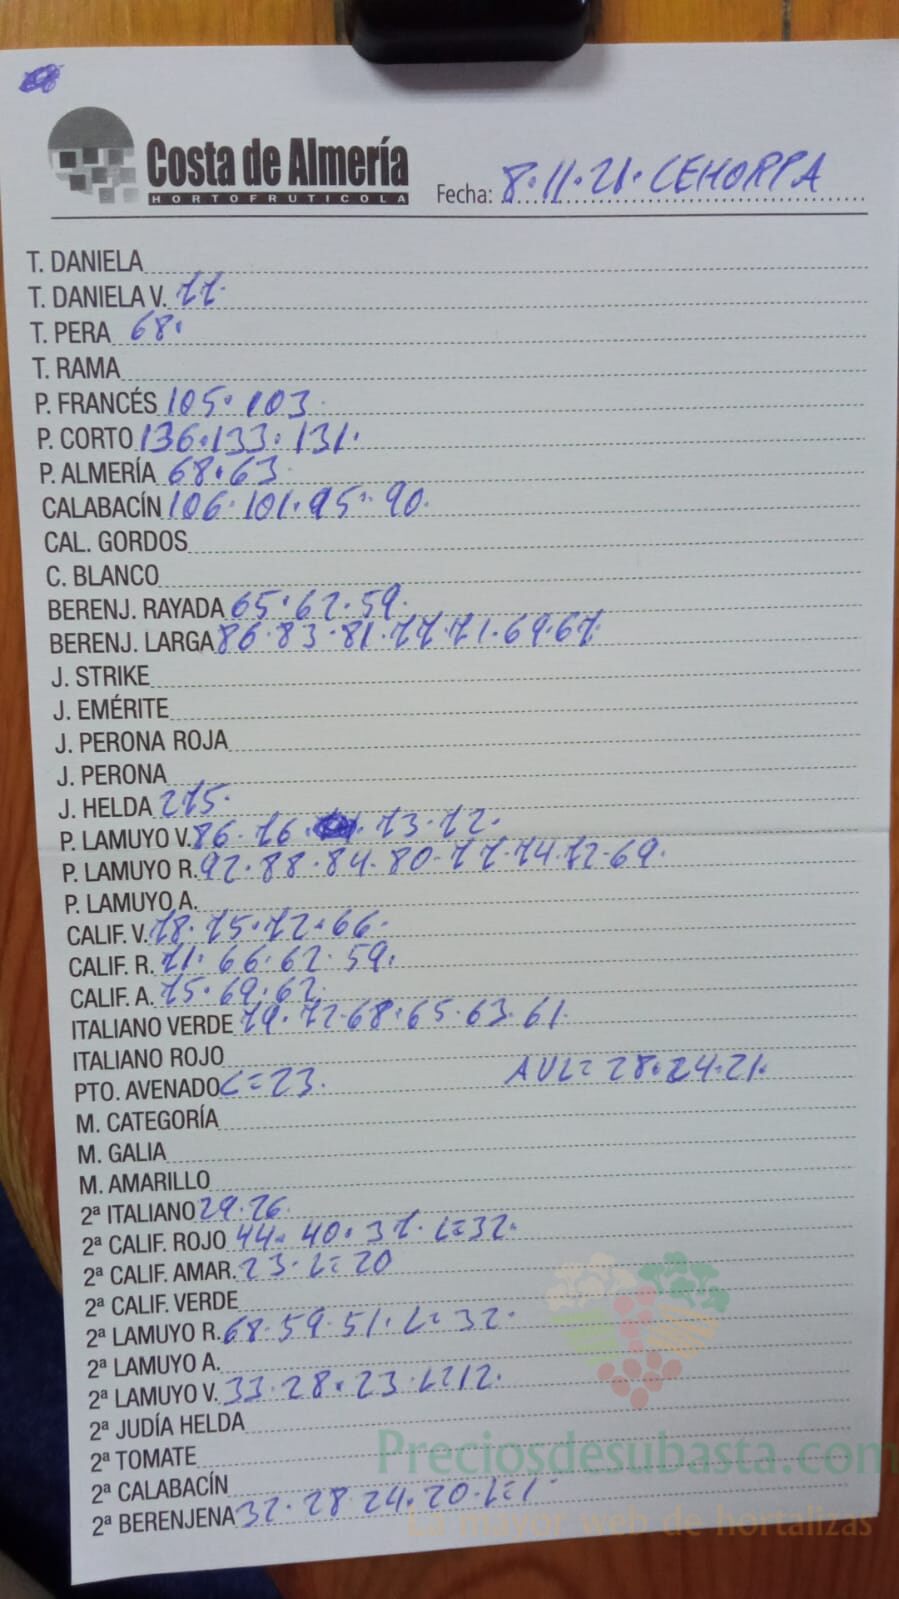 Costa de Almería
HORTOFRUTICOLA
Fecha: 8.11.21. CEHORPA
T. DANIELA
T. DANIELA V. 77.
T. PERA 68.
T. RAMA
P. FRANCÉS 105. 103.
P. CORTO 136. 133. 131.
P. ALMERÍA 68. 63.
CALABACÍN 106. 101. 95. 90.
CAL. GORDOS
C. BLANCO
BERENJ. RAYADA 65. 62. 59.
BERENJ. LARGA 86. 83. 81. 77. 71. 69. 67.
J. STRIKE
J. EMÉRITE
J. PERONA ROJA
J. PERONA
J. HELDA 275.
P. LAMUYO V. 86. 76. 73. 72.
P. LAMUYO R. 92. 88. 84. 80. 77. 74. 72. 69.
P. LAMUYO A.
CALIF. V. 78. 75. 72. 66.
CALIF. R. 71. 66. 62. 59.
CALIF. A. 75. 69. 62.
ITALIANO VERDE 79. 72. 68. 65. 63. 61.
ITALIANO ROJO
PTO. AVENADO L=23. AVL= 28. 24. 21.
M. CATEGORÍA
M. GALIA
M. AMARILLO
2ª ITALIANO 29. 26.
2ª CALIF. ROJO 44. 40. 37. L=32.
2ª CALIF. AMAR. 23. L=20
2ª CALIF. VERDE
2ª LAMUYO R. 68. 59. 51. L=32.
2ª LAMUYO A.
2ª LAMUYO V. 33. 28. 23. L=12.
2ª JUDÍA HELDA
2ª TOMATE
2ª CALABACÍN
2ª BERENJENA 32. 28. 24. 20. L=1
Preciosdesubasta.com
La mayor web de hortalizas